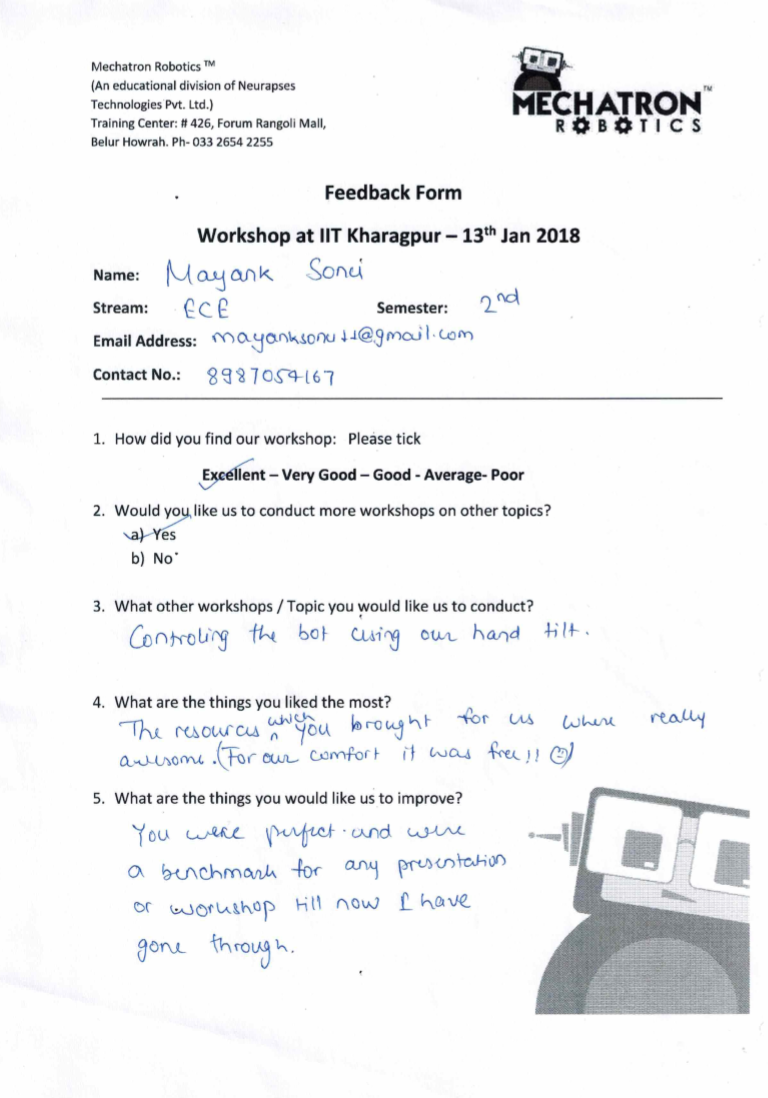 Mechatron Robotics ™
(An educational division of Neurapses
Technologies Pvt. Ltd.)
Training Center: # 426, Forum Rangoli Mall,
Belur Howrah. Ph- 033 2654 2255
MECHATRON™
ROBOTICS
Feedback Form
Workshop at IIT Kharagpur – 13th Jan 2018
Name: Mayank Soni
Stream: ECE Semester: 2nd
Email Address:
Contact No.: 8987054167
1. How did you find our workshop: Please tick
Excellent – Very Good – Good - Average- Poor
2. Would you like us to conduct more workshops on other topics?
a) Yes
b) No
3. What other workshops / Topic you would like us to conduct?
Controling the bot using our hand tilt.
4. What are the things you liked the most?
The resources which you brought for us where really
awesome. (For our comfort it was free!! ☺)
5. What are the things you would like us to improve?
You were perfect and were
a benchmark for any presentation
or workshop till now I have
gone through.